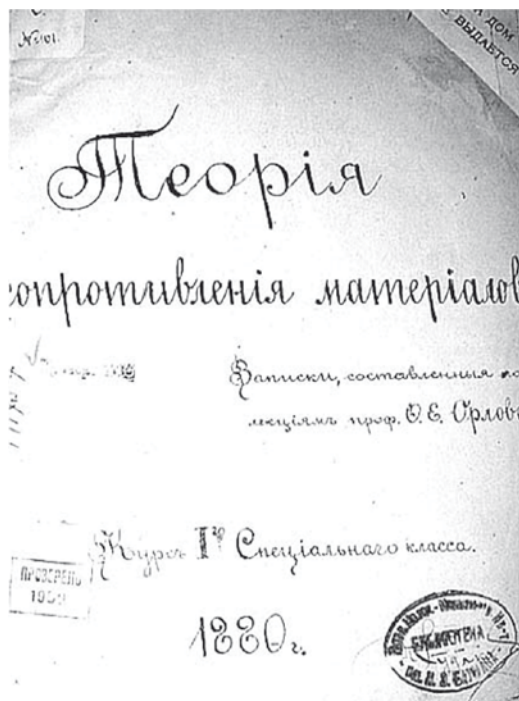 № 101.
ДОМ
ВЫДАЕТСЯ
Теорія
сопротивленія матеріалов
Записки, составленныя по
лекціямъ проф. Ѳ. Е. Орлов
Курсъ Iго Спеціальнаго класса.
ПРОВЕРЕНО
1880 г.
БИБЛИОТЕКА